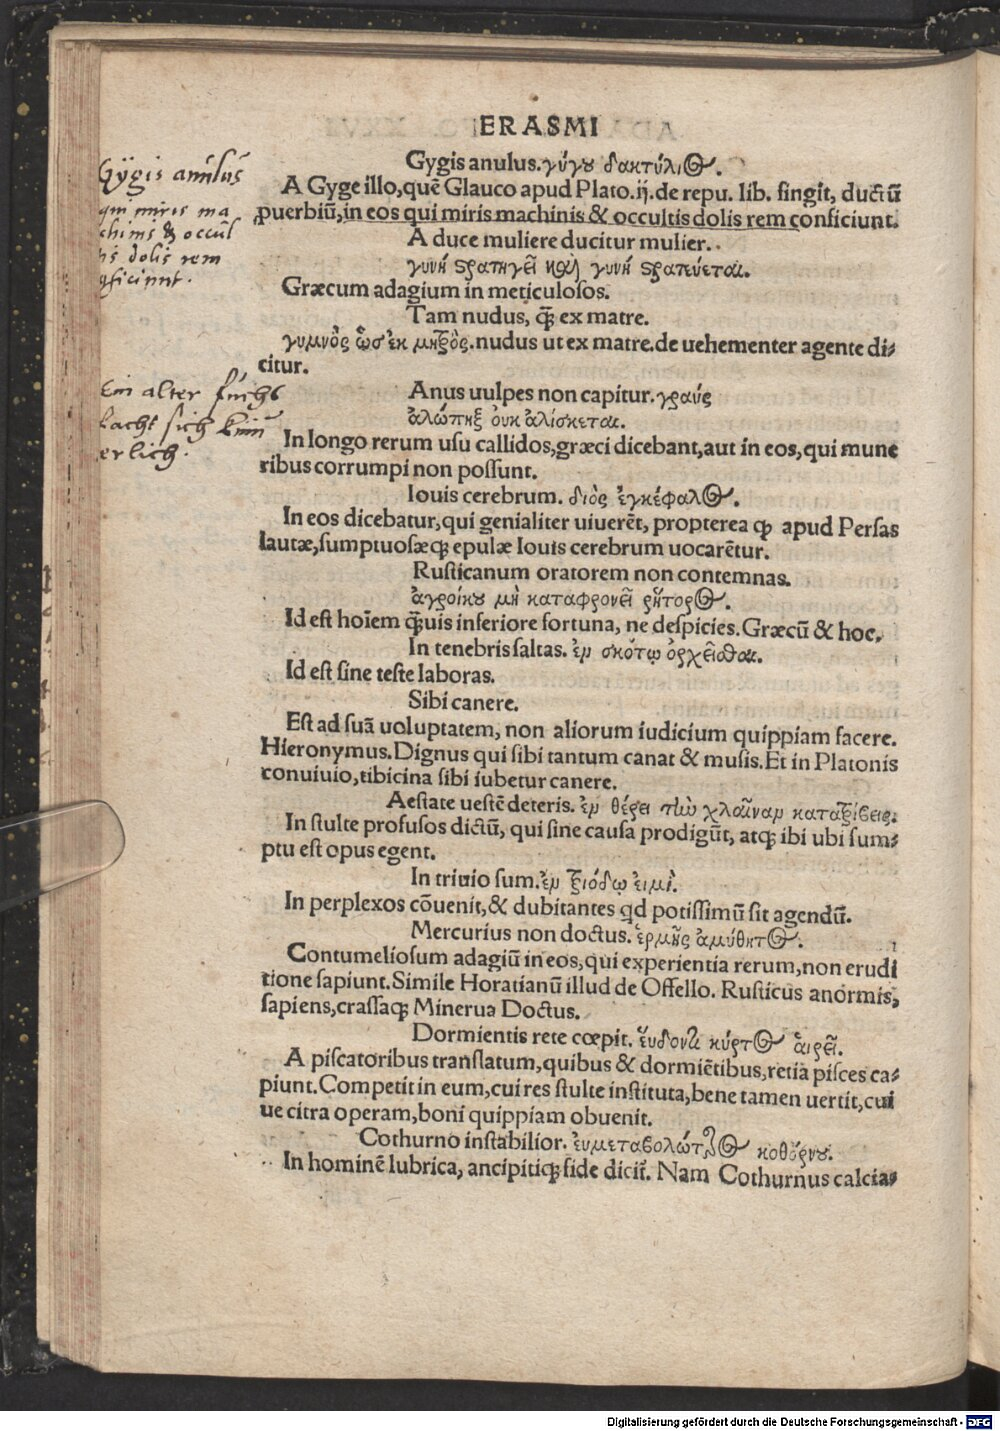 ERASMI
Gygis anulus. γύγου δακτύλιος.
A Gyge illo, quē Glauco apud Plato. ij. de repu. lib. fingit, ductū
ꝓuerbiū, in eos qui miris machinis & occultis dolis rem conficiunt.
A duce muliere ducitur mulier.
γυνή στρατηγεῖ καὶ γυνή στρατεύεται.
Græcum adagium in meticulosos.
Tam nudus, ꝙ̃ ex matre.
γυμνὸς ὥσ ἐκ μητρὸς. nudus ut ex matre. de uehementer agente di⸗
citur.
Anus uulpes non capitur. γραύς
ἀλώπηξ ὀυκ ἀλίσκεται.
In longo rerum usu callidos, græci dicebant, aut in eos, qui mune
ribus corrumpi non possunt.
Iouis cerebrum. διὸς ἐγκέφαλος.
In eos dicebatur, qui genialiter uiuerēt, propterea ꝙ apud Persas
lautæ, sumptuosæq; epulæ Iouis cerebrum uocarētur.
Rusticanum oratorem non contemnas.
ἀγροίκου μὴ καταφρονεῖ ρήτορος.
Id est hoīem ꝙ̃uis inferiore fortuna, ne despicies. Græcū & hoc.
In tenebris saltas. ἐν σκότῳ ὀρχεῖσθαι.
Id est sine teste laboras.
Sibi canere.
Est ad suā uoluptatem, non aliorum iudicium quippiam facere.
Hieronymus. Dignus qui sibi tantum canat & musis. Et in Platonis
conuiuio, tibicina sibi iubetur canere.
Aestate uestē deteris. ἐν θέρει τὴν χλαῖναν κατατρίβεις.
In stulte profusos dictū, qui sine causa prodigūt, atq; ibi ubi sum⸗
ptu est opus egent.
In triuio sum. ἐν τριόδῳ ἐιμὶ.
In perplexos cōuenit, & dubitantes qd potissimū sit agendū.
Mercurius non doctus. ἑρμῆς ἀμύθητος.
Contumeliosum adagiū in eos, qui experientia rerum, non erudi
tione sapiunt. Simile Horatianū illud de Offello. Rusticus anormis,
sapiens, crassaq; Minerua Doctus.
Dormientis rete cœpit. ἕυδοντι κύρτος ἁιρεῖ.
A piscatoribus translatum, quibus & dormiētibus, retia pisces ca⸗
piunt. Competit in eum, cui res stulte instituta, bene tamen uertit, cui
ue citra operam, boni quippiam obuenit.
Cothurno instabilior. ἐυμεταβολώτερος κοθόρνου.
In hominē lubrica, ancipitiq; fide dicit̃. Nam Cothurnus calcia⸗
Gÿgis anulus
qui miris ma
chinis & occul
tis dolis rem
ꝯficiunt.
Ein alter fuchs
lacht sich kum
erlich.
Digitalisierung gefördert durch die Deutsche Forschungsgemeinschaft - DFG